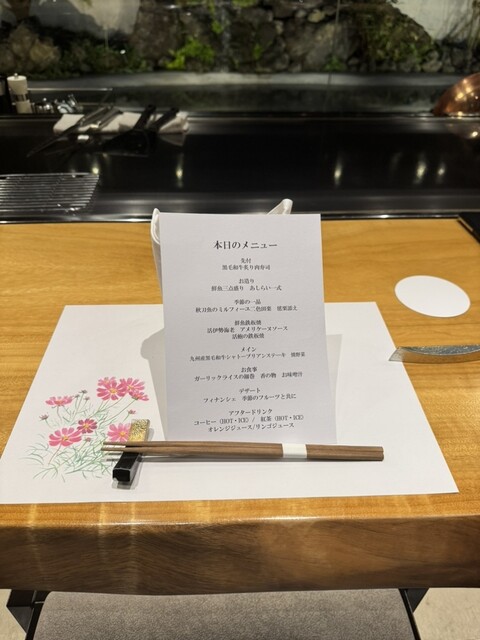 本日のメニュー
先付
黒毛和牛炙り肉寿司
お造り
鮮魚三点盛り　あしらい一式
季節の一品
秋刀魚のミルフィーユ二色田楽　焼栗添え
鮮魚鉄板焼
活伊勢海老　アメリケーヌソース
活鮑の鉄板焼
メイン
九州産黒毛和牛シャトーブリアンステーキ　焼野菜
お食事
ガーリックライスの細巻　香の物　お味噌汁
デザート
フィナンシェ　季節のフルーツと共に
アフタードリンク
コーヒー（HOT・ICE）/　紅茶（HOT・ICE）
オレンジジュース/リンゴジュース